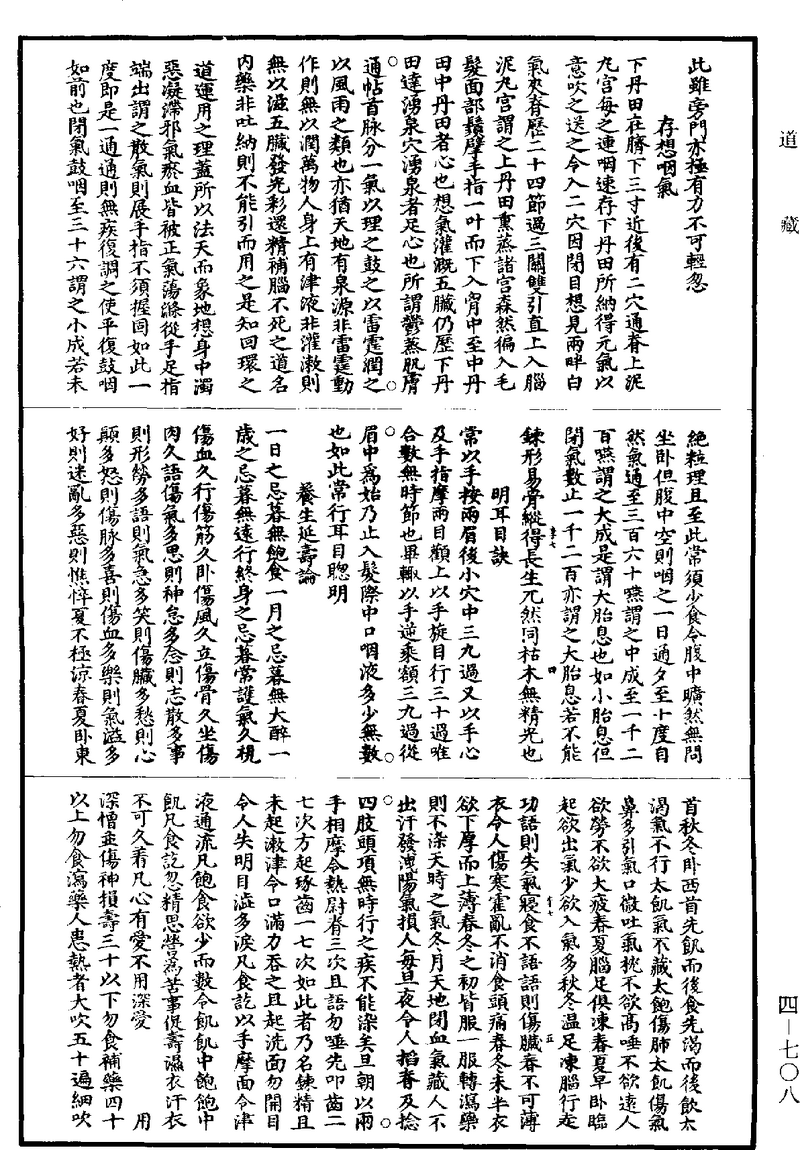 道藏
此雖旁門亦極有力不可輕忽
存想咽氣
下丹田在臍下三寸近後有二穴通脊上泥
九宮每之連咽速存下丹田所納得元氣以
意吹之送之令入二穴因閉目想見兩畔白
氣夾脊歷二十四節過三關雙引直上入腦
泥九宮謂之上丹田熏蒸諸宮森然徧入毛
髮面部鬚臂手指一叶而下入胷中至中丹
田中丹田者心也想氣灌溉五臟仍歷下丹
田達湧泉穴湧泉者足心也所謂鬱蒸肌膚
通帖首脉分一氣以理之鼓之以雷霆潤之
以風雨之類也亦猶天地有泉源非雷霆動
作則無以潤萬物人身上有津液非灌漱則
無以滋五臟發光彩還精補腦不死之道名
內藥非吐納則不能引而用之是知回環之
道運用之理蓋所以法天而象地想身中濁
惡凝滯邪氣瘀血皆被正氣蕩滌從手足指
端出謂之散氣則展手指不須握固如此一
度即是一通通則無疾復調之使平復鼓咽
如前也閉氣鼓咽至三十六謂之小成若未
絕粒理且至此常須少食令腹中曠然無問
坐卧但腹中空則咽之一日通夕至十度自
然氣通至三百六十嚥謂之中成至一千二
百嚥謂之大成是謂大胎息也如小胎息但
閉氣數止一千二百亦謂之大胎息若不能
錬形易骨縱得長生兀然同枯木無精光也
明耳目訣
常以手按兩眉後小穴中三九過又以手心
及手指摩兩目顴上以手旋目行三十過唯
合數無時節也畢輙以手逆乘額三九過從
眉中爲始乃止入髮際中口咽液多少無數
也如此常行耳目聰明
養生延壽論
一日之忌暮無飽食一月之忌暮無大醉一
歲之忌暮無遠行終身之忌暮常護氣久視
傷血久行傷筋久卧傷風久立傷骨久坐傷
肉久語傷氣多思則神怠多念則志散多事
則形勞多語則氣急多笑則傷臟多愁則心
顛多怒則傷脉多喜則傷血多樂則氣溢多
好則迷亂多惡則憔悴夏不極涼春夏卧東
首秋冬卧西首先飢而後食先渴而後飲太
渴氣不行太飢氣不藏太飽傷肺太飢傷氣
鼻多引氣口微吐氣枕不欲高唾不欲遠人
欲勞不欲大疲春夏腦足俱凍春夏早卧臨
起欲出氣少欲入氣多秋冬温足凍腦行走
功語則失氣寢食不語語則傷臟春不可薄
衣令人傷寒霍亂不消食頭痛春冬未半衣
欲下摩而上薄春冬之初皆服一服轉瀉藥
則不染天時之氣冬月天地閉血氣藏人不
出汗發洩陽氣損人每旦夜令人搯脊及捻
四肢頭項無時行之疾不能染矣旦朝以兩
手相摩令熱尉脊三次且語勿唾先叩齒二
七次方起琢齒一七次如此者乃名錬精且
未起漱津令口滿力吞之且起洗面勿開目
令人失明目澁多淚凡食訖以手摩面令津
液通流凡飽食欲少而數令飢飢中飽飽中
飢凡食訖忽精思勞爲苦事促壽濕衣汗衣
不可久着凡心有愛不用深愛　用
深憎並傷神損壽三十以下勿食補藥四十
以上勿食瀉藥人患熱者大吹五十遍細吹
四一七〇八